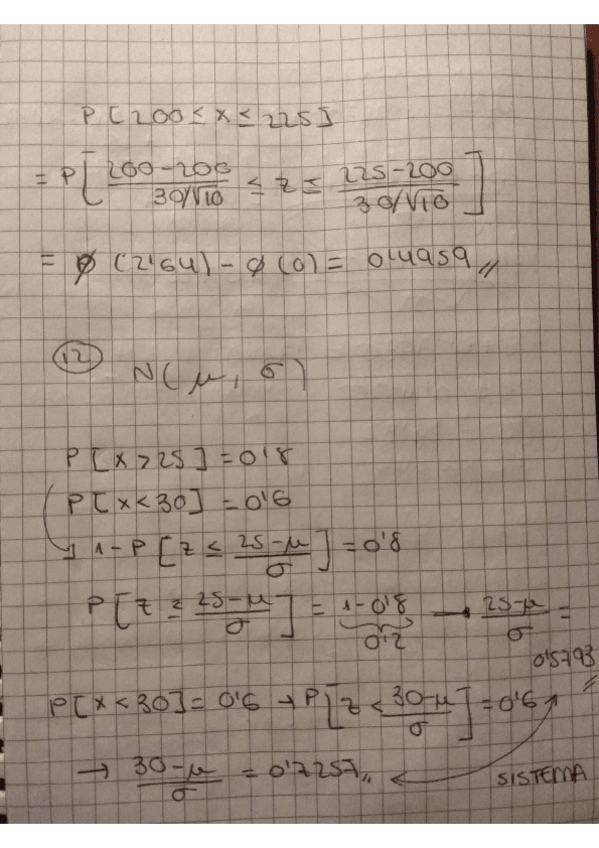 P[200 ≤ x ≤ 225]
= P[ (200-200)/(30/√10) ≤ z ≤ (225-200)/(30/√10) ]
= φ (2'64) - φ (0) = 0'4959 //
(12) N(μ, σ)
P[x > 25] = 0'8
P[x < 30] = 0'6
1 - P[z ≤ (25-μ)/σ] = 0'8
P[z ≤ (25-μ)/σ] = 1-0'8 → (25-μ)/σ =
0'2
0'5793 //
P[x < 30] = 0'6 → P[z < (30-μ)/σ] = 0'6
→ (30-μ)/σ = 0'7257 //
SISTEMA